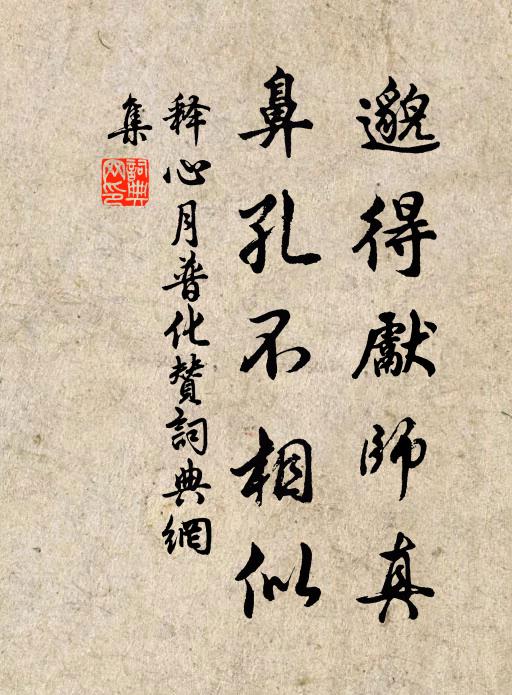 邈得獻師真
鼻孔不相似
释心月普化贊詞典網
集
詞典
网印